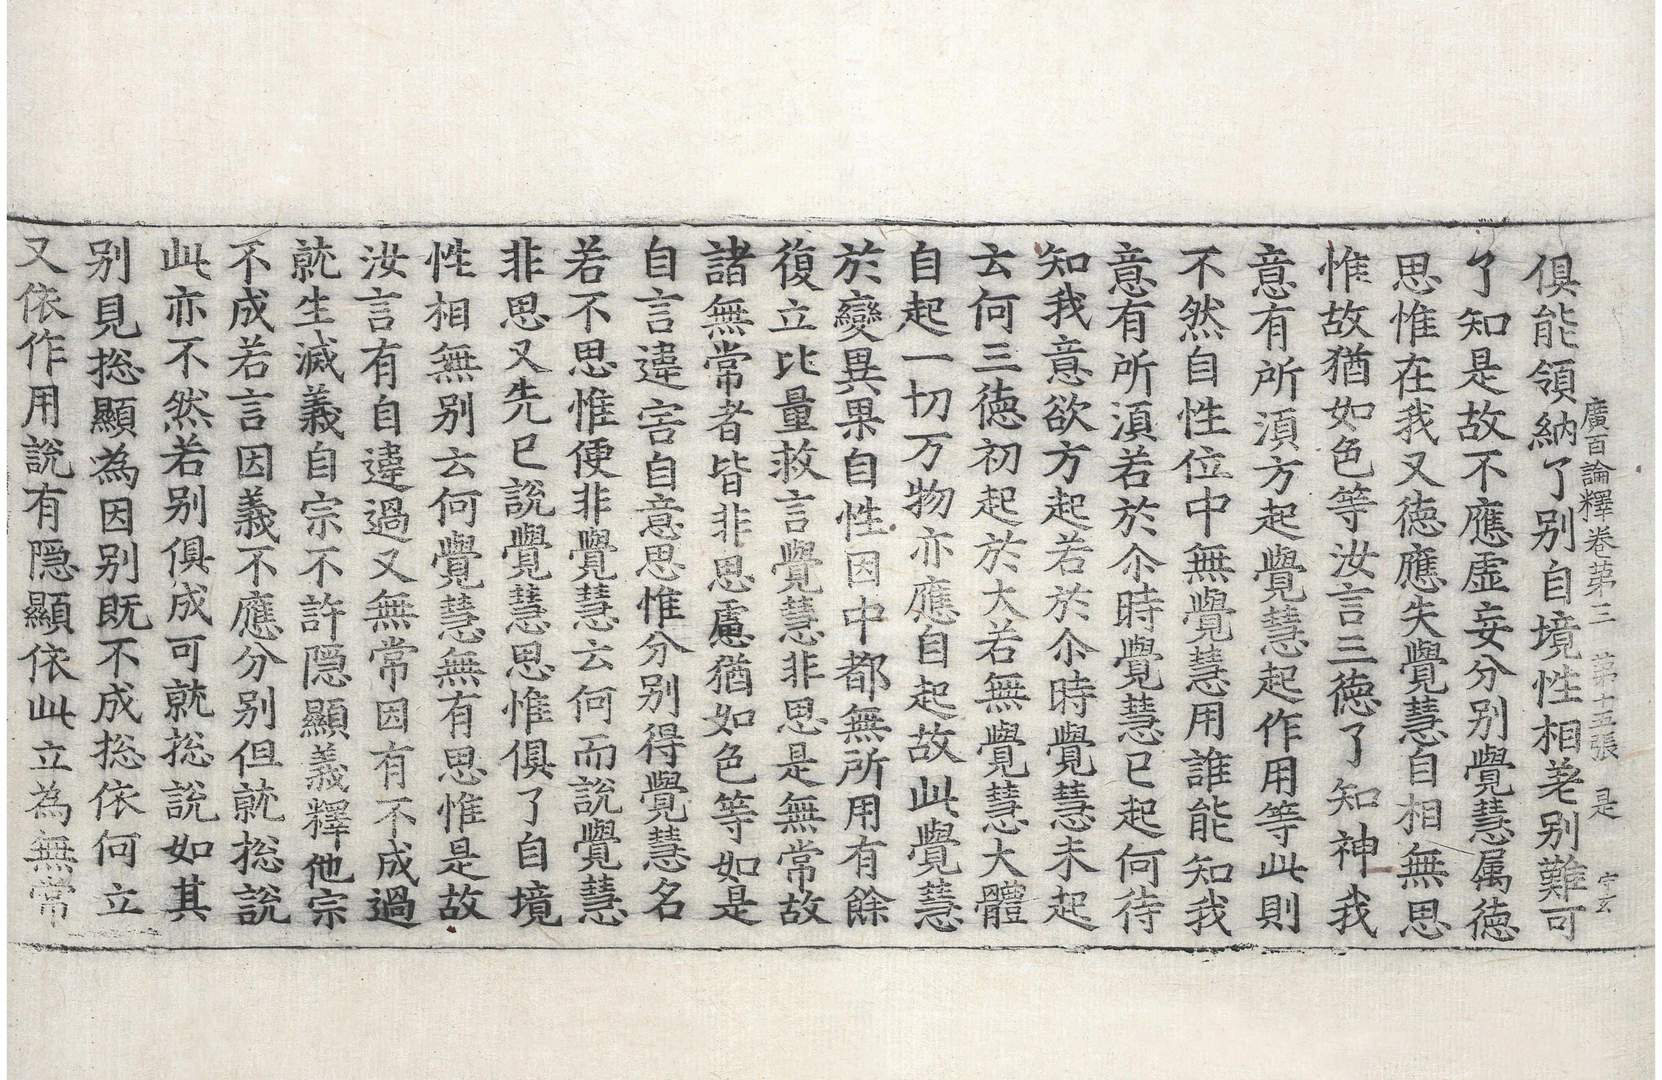 廣百論釋卷苐三 苐十五張 是 宁玄
俱能領納了别自境性相差别難可
了知是故不應虛妄分别覺慧属徳
思惟在我又徳應失覺慧自相無思
惟故猶如色等汝言三徳了知神我
意有所湏方起覺慧起作用等此則
不然自性位中無覺慧用誰能知我
意有所湏若於尒時覺慧已起何待
知我意欲方起若於尒時覺慧未起
云何三徳初起於大若無覺慧大體
自起一切万物亦應自起故此覺慧
於變異果自性因中都無所用有餘
復立比量救言覺慧非思是無常故
諸無常者皆非思慮猶如色等如是
自言違害自意思惟分别得覺慧名
若不思惟便非覺慧云何而說覺慧
非思又先已說覺慧思惟俱了自境
性相無别云何覺慧無有思惟是故
汝言有自違過又無常因有不成過
就生滅義自宗不許隠顯義釋他宗
不成若言因義不應分别但就捴說
此亦不然若别俱成可就捴說如其
别見捴顯為因别既不成捴依何立
又依作用說有隠顯依此立為無常